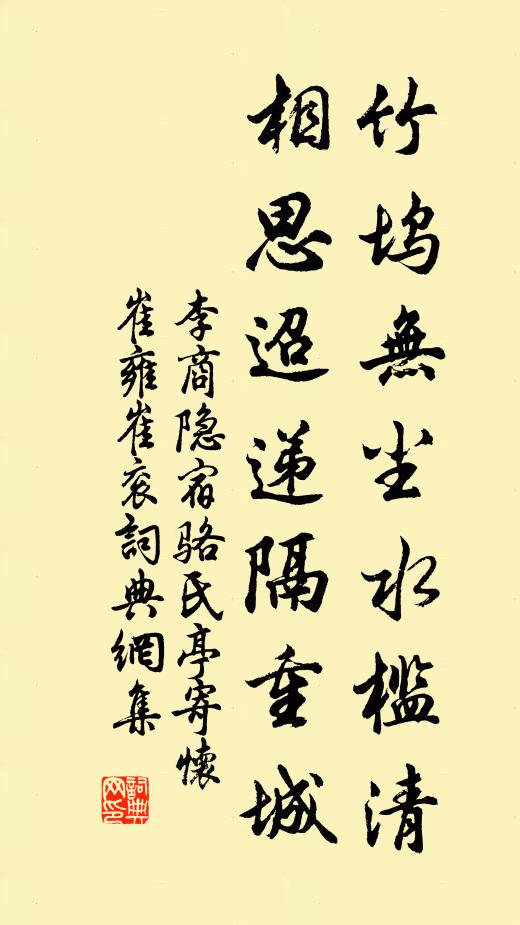 竹坞無尘水槛清
相思迢递隔重城
李商隐宿骆氏亭寄懷
崔雍崔衮詞典網集
詞典
网印